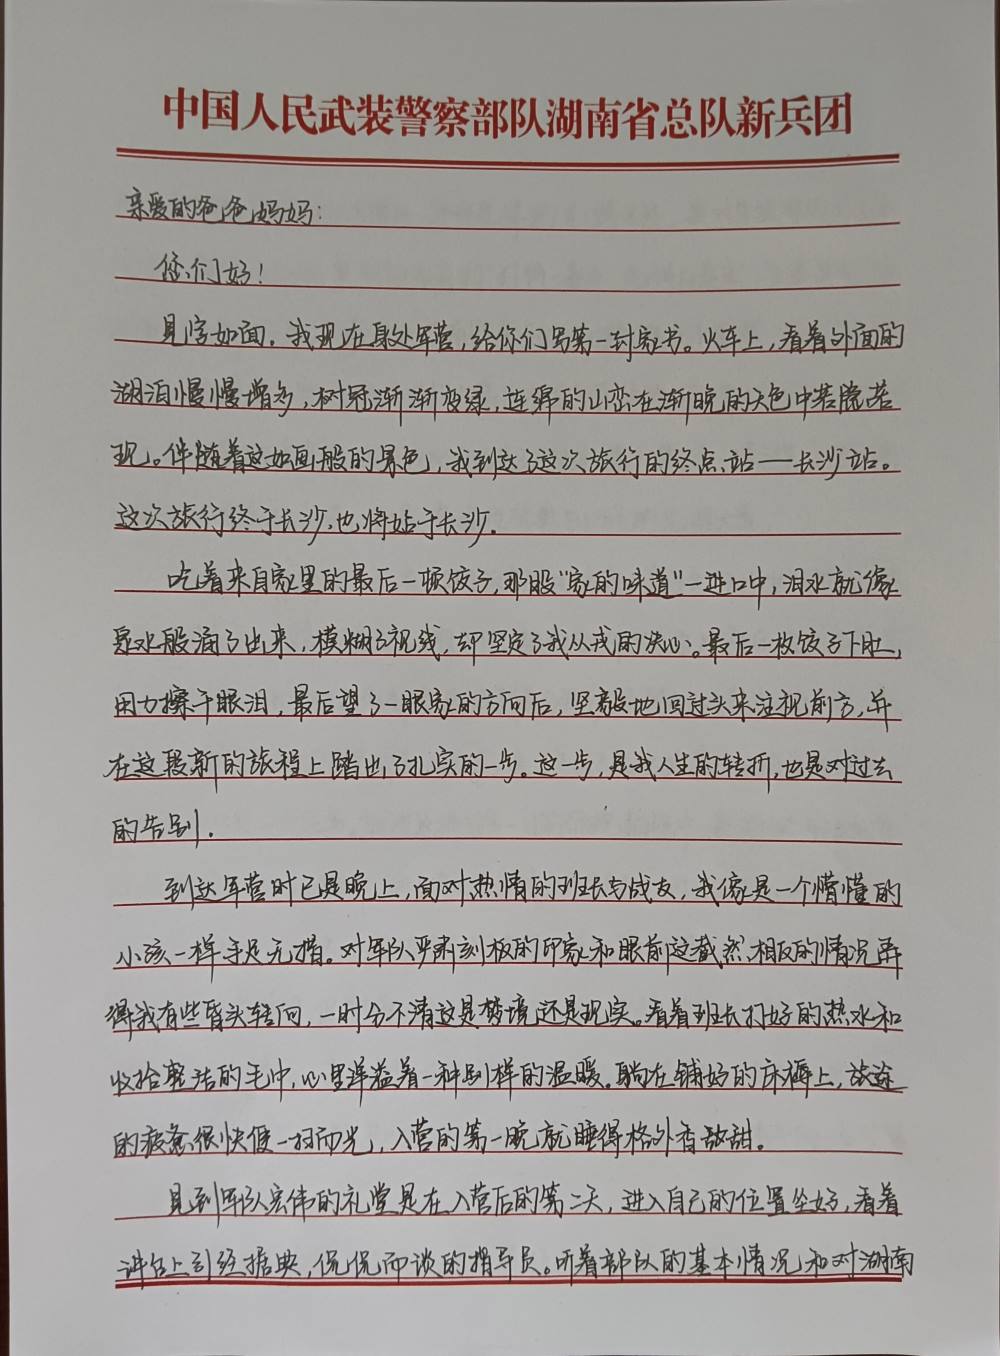 中国人民武装警察部队湖南省总队新兵团
亲爱的爸爸妈妈：
您们好！
见字如面。我现在身处军营，给你们写第一封家书。火车上，看着外面的
湖泊慢慢增多，树冠渐渐变绿，连绵的山峦在渐晚的天色中若隐若
现。伴随着这如画般的景色，我到达了这次旅行的终点站——长沙站。
这次旅行终于长沙，也将始于长沙。
吃着来自家里的最后一顿饺子，那股“家的味道”一进口中，泪水就像
泉水般涌了出来，模糊了视线，却坚定了我从戎的决心。最后一枚饺子下肚，
用力擦干眼泪，最后望了一眼家的方向后，坚毅地回过头来注视前方，并
在这段新的旅程上踏出了扎实的一步。这一步，是我人生的转折，也是对过去
的告别．
到达军营时已是晚上，面对热情的班长与战友，我像是一个懵懂的
小孩一样手足无措。对军队严肃刻板的印象和眼前这截然相反的情况弄
得我有些昏头转向，一时分不清这是梦境还是现实。看着班长打好的热水和
收拾整洁的毛巾，心里洋溢着一种别样的温暖。躺在铺好的床褥上，旅途
的疲惫很快便一扫而光，入营的第一晚就睡得格外香甜。
见到军队宏伟的礼堂是在入营后的第二天，进入自己的位置坐好，看着
讲台上引经据典，侃侃而谈的指导员。听着部队的基本情况和对湖南